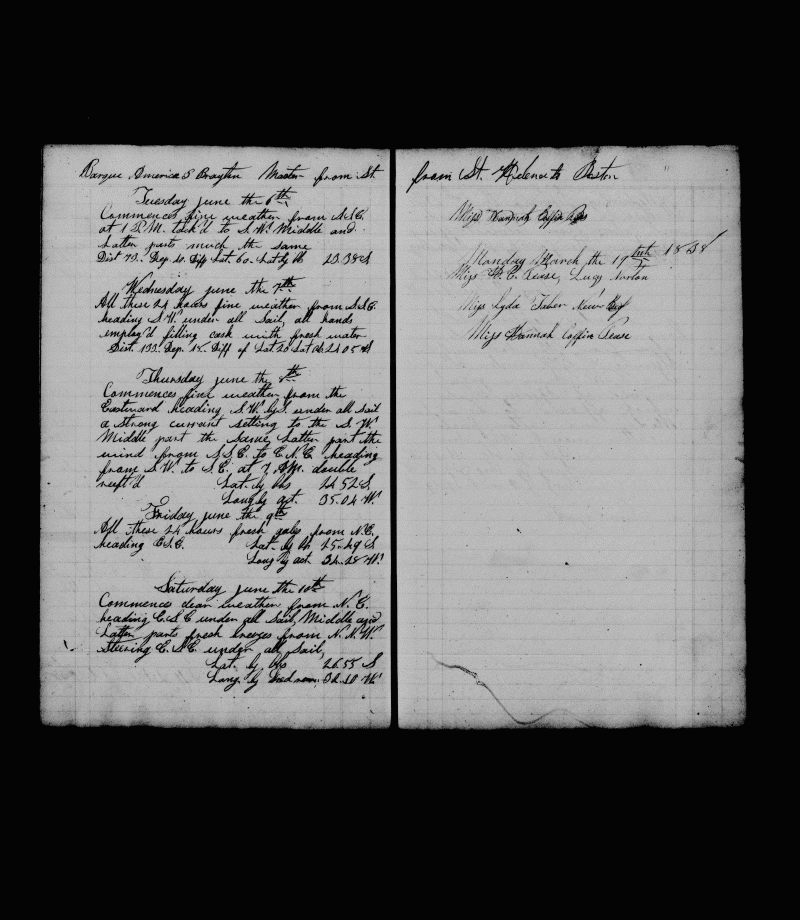 Barque America S Brayton Master from St
Tuesday june the 6th
Commences fine weather from S.S.E.
at 1 P.M. tack'd to S.W. Middle and
Latter parts much the same
Dist 73. Dep. Diff Lat. 60. Lat by Ob 23.38 S
Wednesday june the 7th
All these 24 hours fine weather from S.S.E.
heading S.W. under all sail, all hands
employ'd filling cask with fresh water
Dist. 133. Dep. Diff of Lat Lat Ob 24.05 S
Thursday june the 8th
Commences fine weather from the
Eastward heading S.W. by S. under all sail
a strong current setting to the S.W.
Middle part the same, Latter part the
wind from S.S.E. to E.N.E. heading
from S.W. to S.E. at 7 A.M. double
reeft'd Lat. by obs 24.52 S.
Long by act. 35.04 W.
Friday june the 9th
All these 24 hours fresh gales from N.E.
heading E.S.E. Lat. by Ob 25.49 S
Long by act. 34.28 W.
Saturday june the 10th
Commences clear weather from N.E.
heading E.S.E under all sail, Middle and
Latter parts fresh breezes from N.N.W
Steering E.S.E. under all sail,
Lat. by obs 26.55 S
Long. by 32.10 W.
from St. Helena to Boston
Miss Hannah Coffin
Monday March the 19 1838
Miss Pease, Lucy Norton
Miss Lyda Taber New
Miss Hannah Coffin Pease